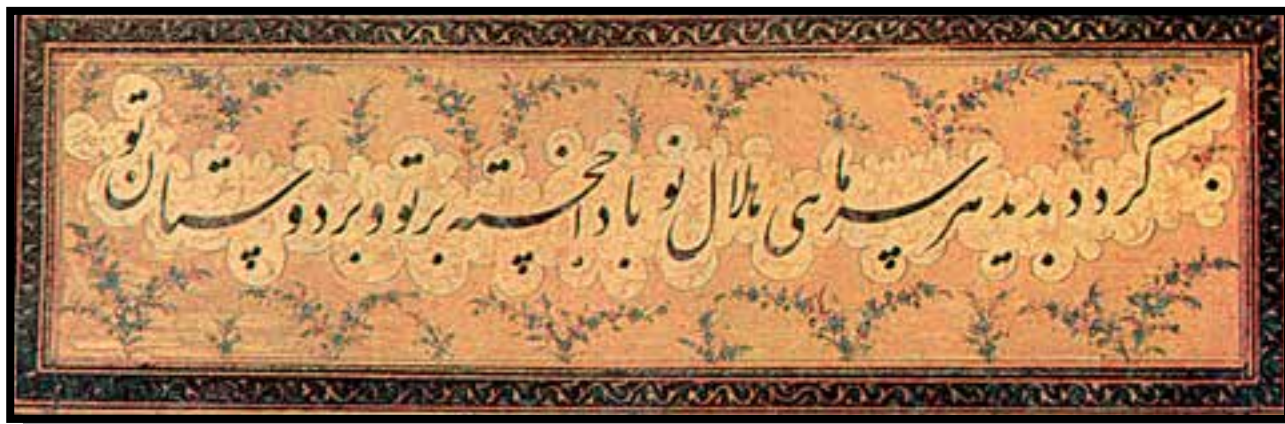 گردد بدید هر سر ماهی هلال نو بادا خجسته بر تو و بر دوستان تو